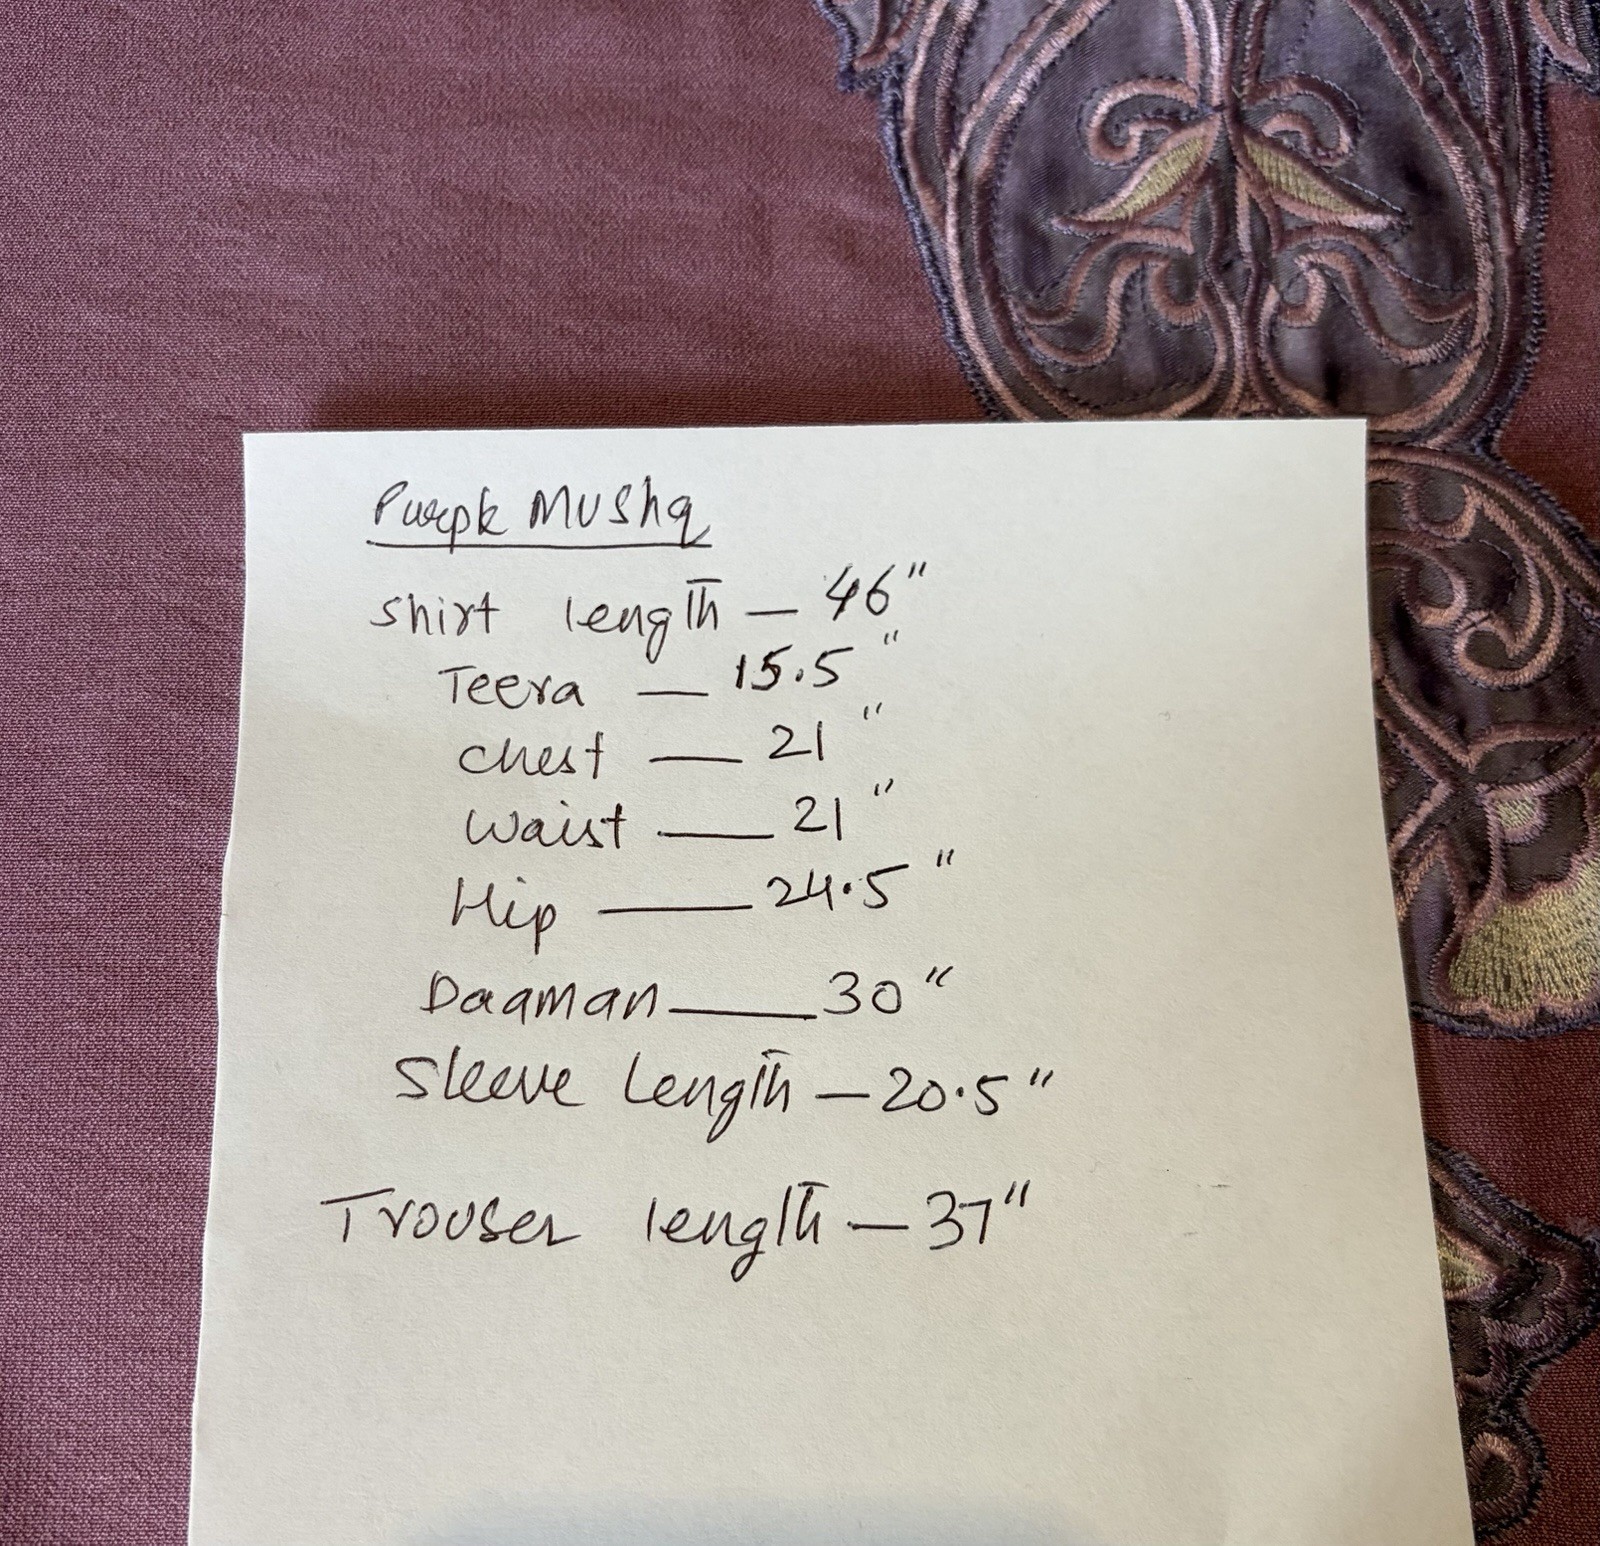 Purple Mushq
Shirt length — 46"
Teera — 15.5"
Chest — 21"
Waist — 21"
Hip — 24.5"
Daaman — 30"
Sleeve Length — 20.5"
Trouser length — 37"